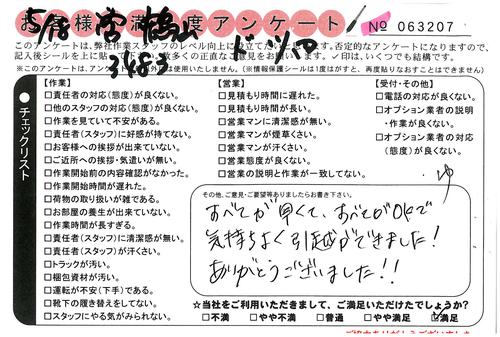 お客様満足度アンケート
№ 063207
このアンケートは、弊社作業スタッフのレベル向上に役立てたい
す。否定的なアンケートになりますので、
記入後シールを上に貼
数多くの正直な
いします。✓印は、いくつでも結構です。
※このアンケートは、
使用いたしません。(※情報保護シールは1度はがすと、再度貼りなおすことはできません)
チェックリスト
【作業】
□責任者の対応(態度)が良くない。
□他のスタッフの対応(態度)が良くない。
□作業を見ていて不安がある。
□責任者(スタッフ)に好感が持てない。
□お客様への挨拶が出来ていない。
□ご近所への挨拶・気遣いが無い。
□作業開始前の内容確認がなかった。
□作業開始時間が遅れた。
□荷物の取り扱いが雑である。
□お部屋の養生が出来ていない。
□作業時間が長すぎる。
□責任者(スタッフ)に清潔感が無い。
□責任者(スタッフ)が汗くさい。
□トラックが汚い。
□梱包資材が汚い。
□運転が不安(下手)である。
□靴下の履き替えをしてない。
□スタッフにやる気がみられない。
【営業】
□見積もり時間に遅れた。
□見積もり時間が長い。
□営業マンに清潔感が無い。
□営業マンが煙草くさい。
□営業マンが汗くさい。
□営業態度が良くない。
□営業の説明と作業が一致してない。
【受付・その他】
□電話の対応が良くない。
□オプション業者の説明
・作業が良くない。
□オプション業者の対応
(態度)が良くない。
その他、ご意見・ご要望等ありましたらお書き下さい。
すべてが早くて、すべてがOKで
気持ちよく引越ができました!
ありがとうございました!!
☆当社をご利用いただきまして、ご満足いただけたでしょうか?
□不満 □やや不満 □普通 □やや満足 ☑満足
ご協力ありがとうございました